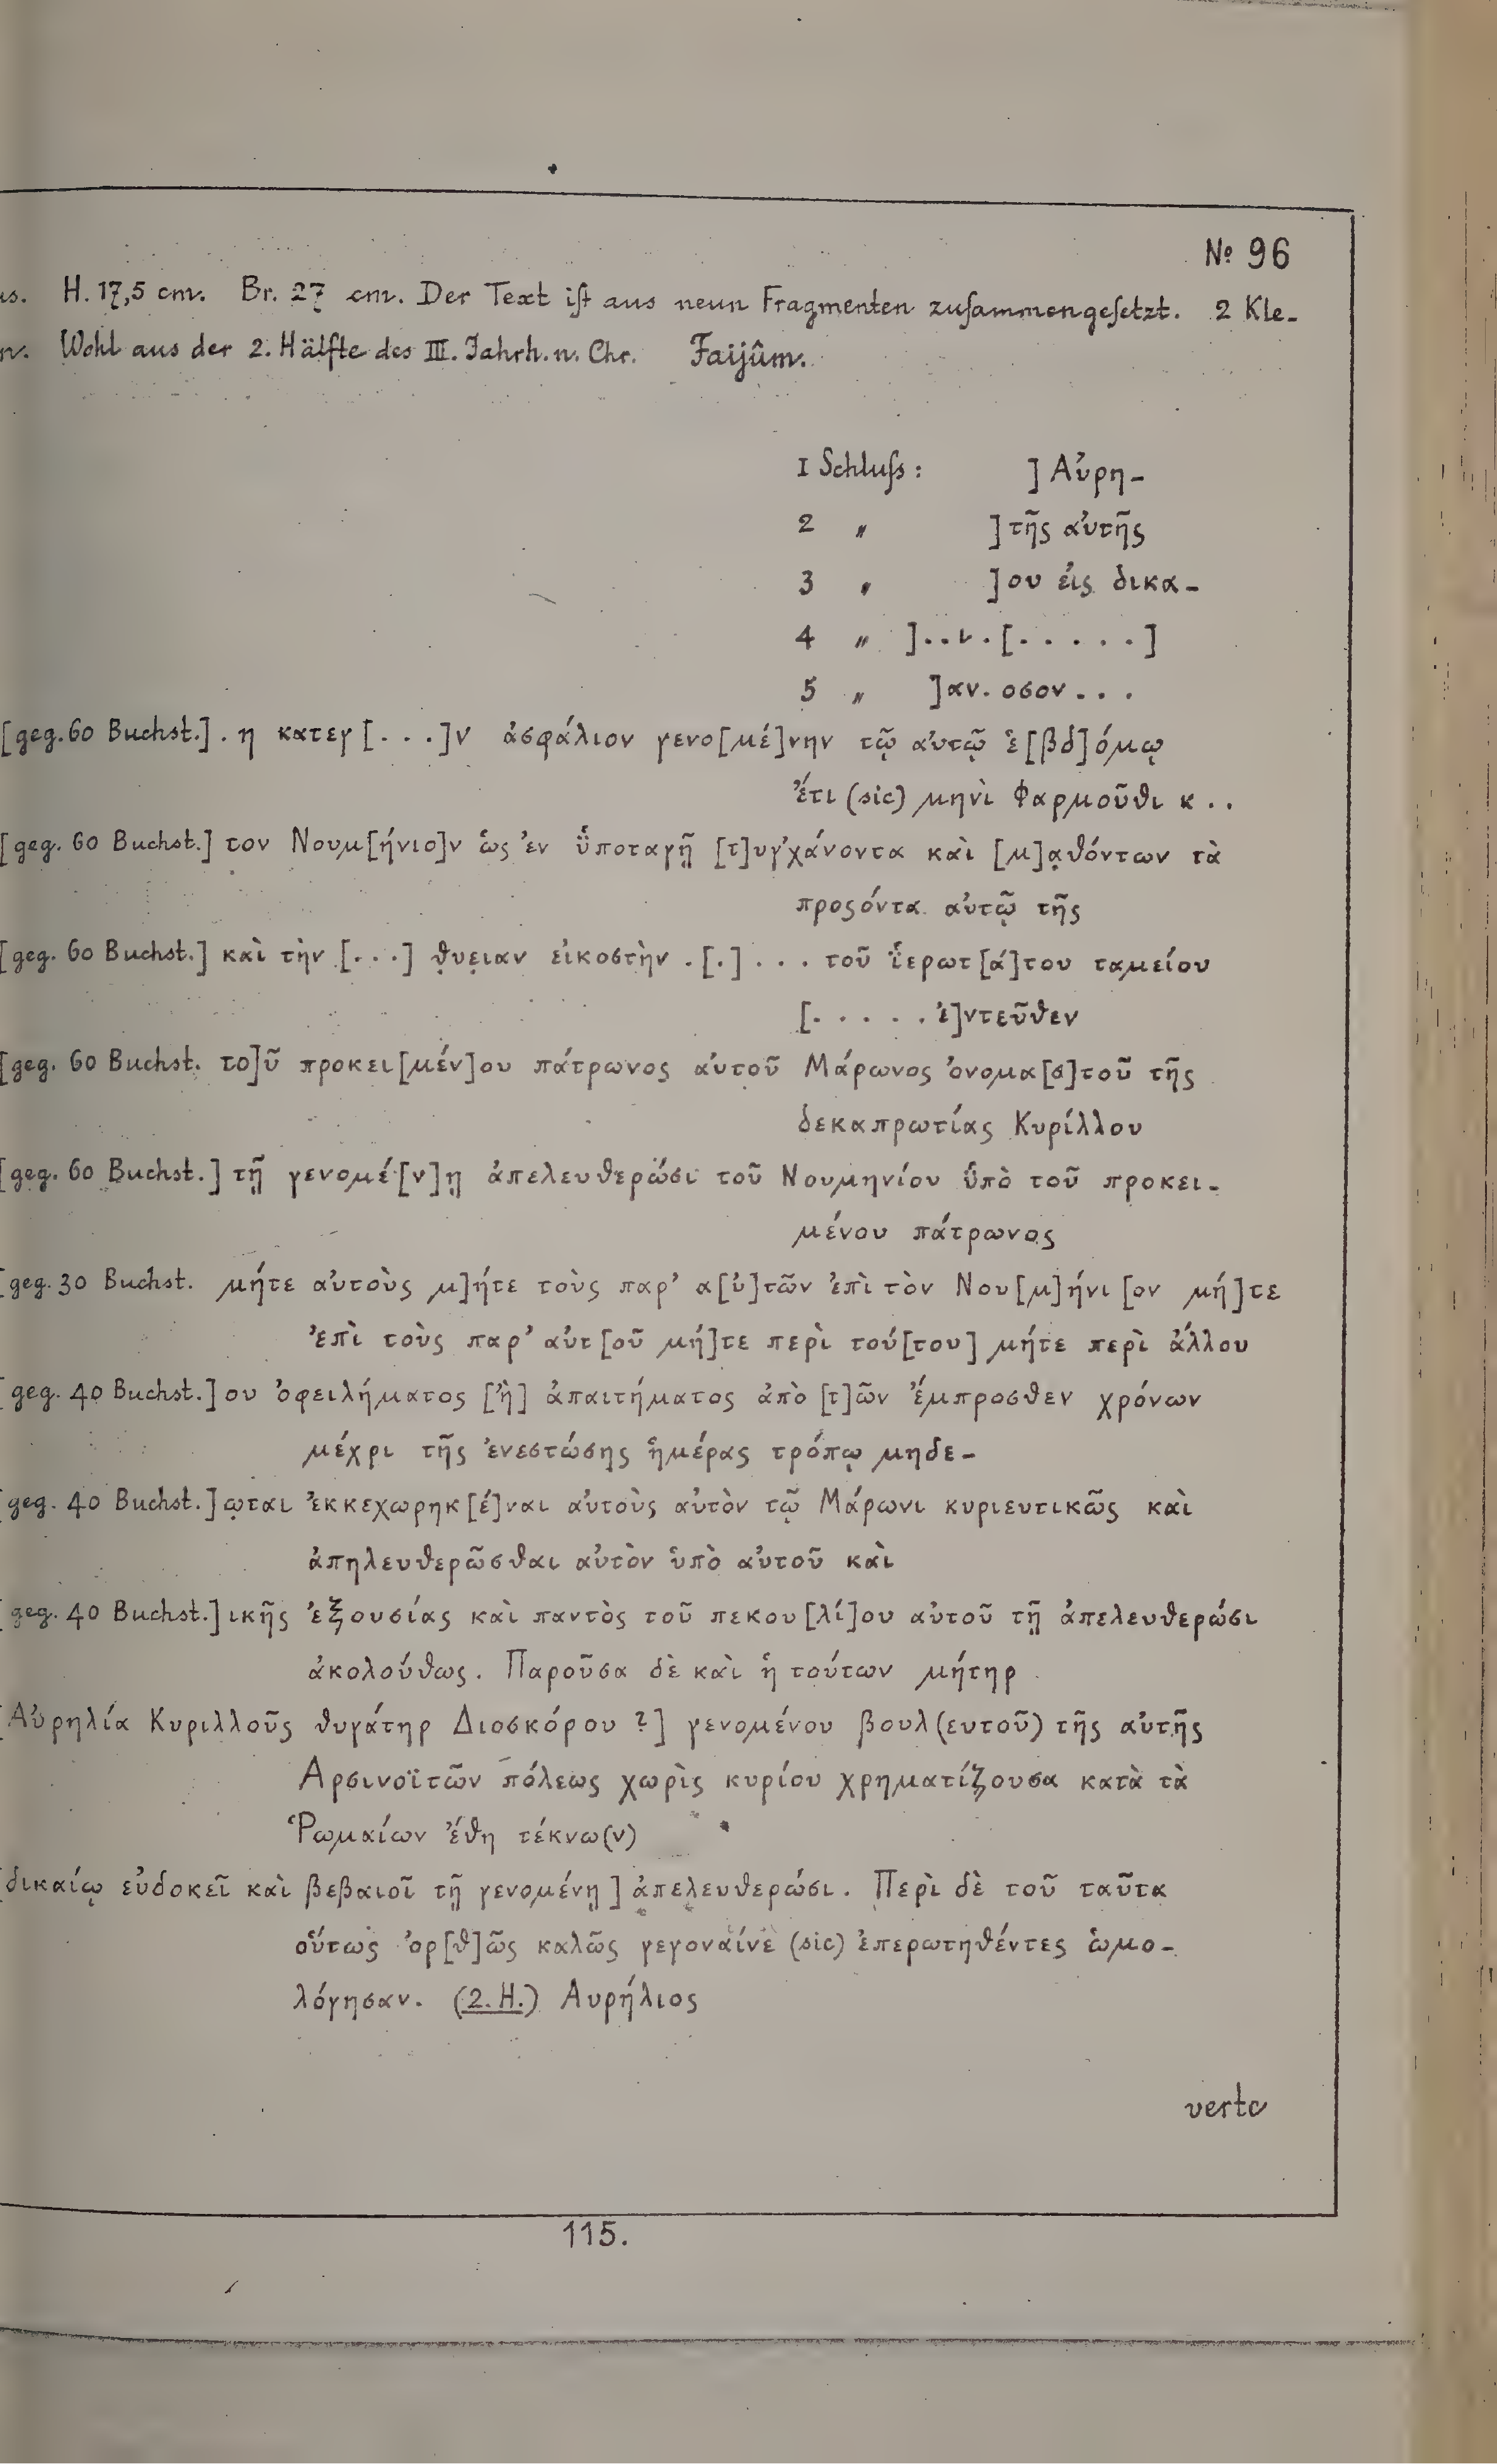 № 96
us. H. 17,5 cm. Br. 27 cm. Der Text ist aus neun Fragmenten zusammengesetzt. 2 Kle-
n. Wohl aus der 2. Hälfte des III. Jahrh. n. Chr. Faijûm.
1 Schluſs: ] Αὐρη-
2 〃 ] τῆς αὐτῆς
3 〃 ]ου εἰς δικα-
4 〃 ]..ι.[.....]
5 〃 ]αν.οσον...
[geg. 60 Buchst.] . η κατεγ[...]ν ἀσφάλιον γενο[μέ]νην τῷ αὐτῷ ἑ[βδ]όμῳ
ἔτι (sic) μηνὶ Φαρμοῦθι κ..
[geg. 60 Buchst.] τον Νουμ[ήνιο]ν ὡς ἐν ὑ̈ποταγῇ [τ]υγ᾽χάνοντα καὶ [μ]α̣θόντων τὰ
προςόντα αὐτῷ τῆς
[geg. 60 Buchst.] καὶ τὴν [...] θ̣υε̣ιαν εἰκοστὴν .[.]... τοῦ ἱ̈ερωτ[ά]του ταμείου
[.....ἐ]ντεῦθεν
[geg. 60 Buchst. το]ῦ προκει[μέν]ου πάτρωνος αὐτοῦ Μάρωνος ὀνομα[σ]τοῦ τῆς
δεκαπρωτίας Κυρίλλου
[geg. 60 Buchst.] τῇ γενομέ[ν]ῃ ἀπελευθερώσι τοῦ Νουμηνίου ὑ̈πὸ τοῦ προκει-
μένου πάτρωνος
[geg. 30 Buchst. μήτε αὐτοὺς μ]ήτε τοὺς παρ᾽ α[ὐ]τῶν ἐπὶ τὸν Νου[μ]ήνι[ον μή]τε
ἐπὶ τοὺς παρ᾽ αὐτ[οῦ μή]τε περὶ τού[του] μήτε περὶ ἄλλου
[geg. 40 Buchst.]ου ὀφειλήματος [ἢ] ἀπαιτήματος ἀπὸ [τ]ῶν ἔμπροσθεν χρόνων
μέχρι τῆς ἐνεστώσης ἡμέρας τρόπῳ μηδε-
[geg. 40 Buchst.]ω̣ται ἐκκεχωρηκ[έ]ναι αὐτοὺς αὐτὸν τῷ Μάρωνι κυριευτικῶς καὶ
ἀπηλευθερῶσθαι αὐτὸν ὑπὸ αὐτοῦ καὶ
[geg. 40 Buchst.]ικῆς ἐξουσίας καὶ παντὸς τοῦ πεκου[λί]ου αὐτοῦ τῇ ἀπελευθερώσι
ἀκολούθως. Παροῦσα δὲ καὶ ἡ τούτων μήτηρ
[Αὐρηλία Κυριλλοῦς θυγάτηρ Διοσκόρου ?] γενομένου βουλ(ευτοῦ) τῆς αὐτῆς
Αρσινοϊτῶν πόλεως χωρὶς κυρίου χρηματίζουσα κατὰ τὰ
Ῥωμαίων ἔθη τέκνω(ν)
[δικαίῳ εὐδοκεῖ καὶ βεβαιοῖ τῇ γενομένῃ] ἀπελευθερώσι. Περὶ δὲ τοῦ ταῦτα
οὕτως ὀρ[θ]ῶς καλῶς γεγοναίνε (sic) ἐπερωτηθέντες ὡμο-
λόγησαν. (2. H.) Αυρήλιος
verte
115.